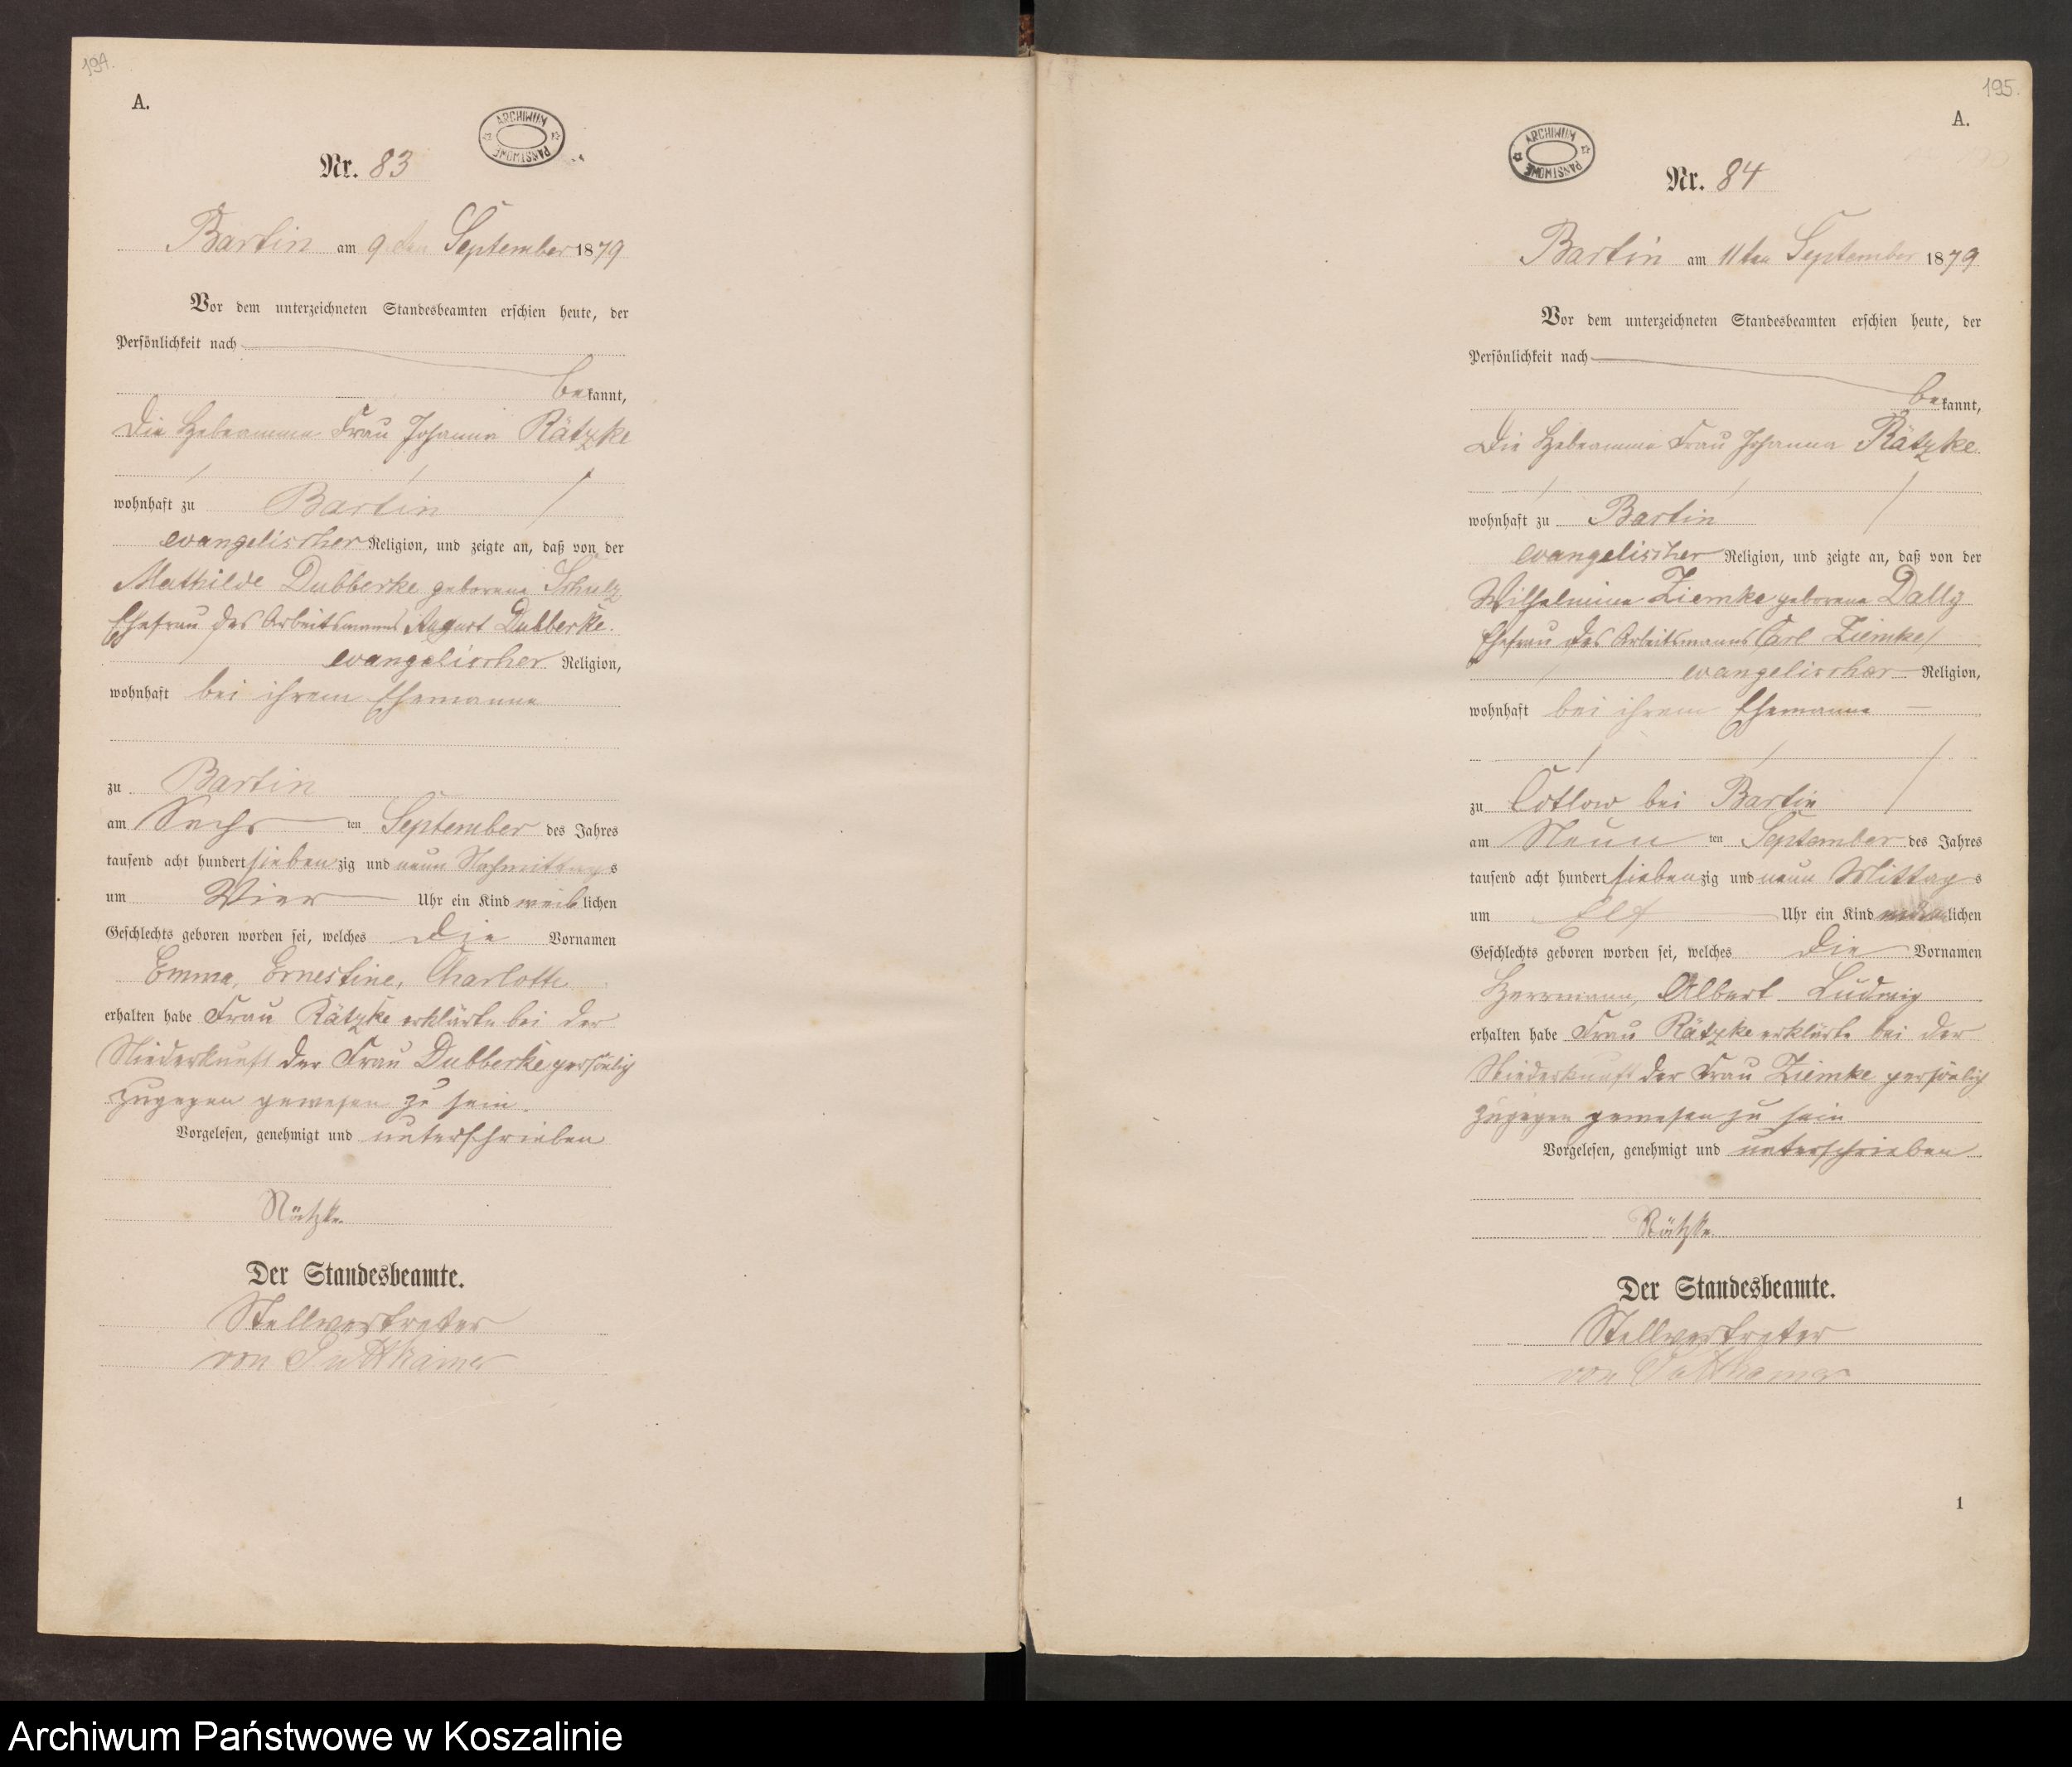 194.
A.
ARCHIWUM PAŃSTWOWE
Nr. 83
Bartin am 9ten September 1879
Vor dem unterzeichneten Standesbeamten erschien heute, der
Persönlichkeit nach
bekannt,
die Hebeamme Frau Johanna Rätzke
wohnhaft zu Bartin
evangelischer Religion, und zeigte an, daß von der
Mathilde Dubberke geborene Schulz
Ehefrau des Arbeitsmanns August Dubberke
evangelischer Religion,
wohnhaft bei ihrem Ehemanne
zu Bartin
am Sechs ten September des Jahres
tausend acht hundert siebenzig und neun Nachmittags
um Vier Uhr ein Kind weiblichen
Geschlechts geboren worden sei, welches die Vornamen
Emma, Ernestine, Charlotte
erhalten habe Frau Rätzke erklärte bei der
Niederkunft der Frau Dubberke persönlich
zugegen gewesen zu sein.
Vorgelesen, genehmigt und unterschrieben
Rätzke
Der Standesbeamte.
Stellvertreter
von Puttkamer
195.
A.
ARCHIWUM PAŃSTWOWE
Nr. 84
Bartin am 11ten September 1879
Vor dem unterzeichneten Standesbeamten erschien heute, der
Persönlichkeit nach
bekannt,
Die Hebeamme Frau Johanna Rätzke
wohnhaft zu Bartin
evangelischer Religion, und zeigte an, daß von der
Wilhelmine Ziemke geborene Dally
Ehefrau des Arbeitsmanns Carl Ziemke
evangelischer Religion,
wohnhaft bei ihrem Ehemanne
zu Cotlow bei Bartin
am Neun ten September des Jahres
tausend acht hundert siebenzig und neun Mittags
um Elf Uhr ein Kind männlichen
Geschlechts geboren worden sei, welches die Vornamen
Herrmann, Albert Ludwig
erhalten habe Frau Rätzke erklärte bei der
Niederkunft der Frau Ziemke persönlich
zugegen gewesen zu sein
Vorgelesen, genehmigt und unterschrieben
Rätzke
Der Standesbeamte.
Stellvertreter
von Puttkamer
1
Archiwum Państwowe w Koszalinie